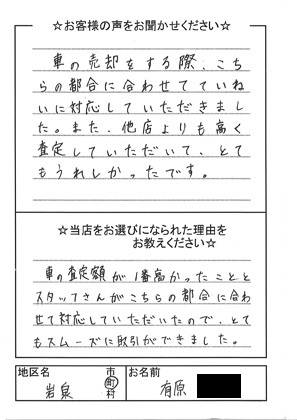 ☆お客様の声をお聞かせください☆
車の売却をする際、こち
らの都合に合わせてていね
いに対応していただきまし
た。また、他店よりも高く
査定していただいて、とて
もうれしかったです。
☆当店をお選びになられた理由を
お教えください☆
車の査定額が1番高かったことと
スタッフさんがこちらの都合に合わ
せて対応していただいたので、とて
もスムーズに取引ができました。
地区名 岩泉 市町村 お名前 有原